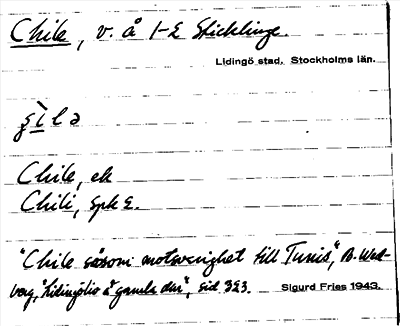 Chile, v. å 1-2 Sticklinge.
Lidingö stad. Stockholms län.
Chile, ek
Chili, Spk 2.
"Chile såsom motsvarighet till Tunis", B. Wed-
berg, "Lidingöliv i gamla dar", sid 323. Sigurd Fries 1943.